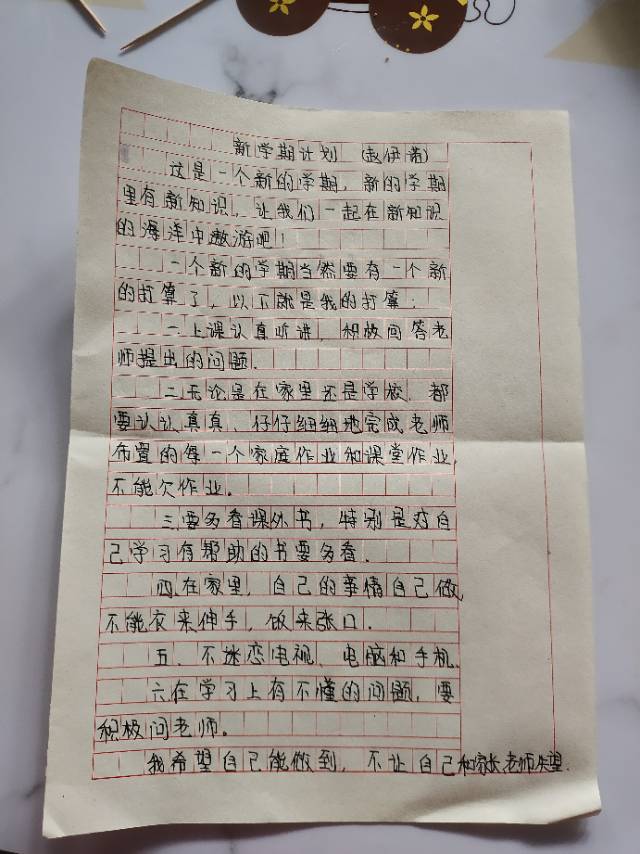 新学期计划 (赵伊诺)
这是一个新的学期，新的学期
里有新知识，让我们一起在新知识
的海洋中遨游吧！
一个新的学期当然要有一个新
的打算了，以下就是我的打算：
一上课认真听讲，积极回答老
师提出的问题.
二无论是在家里还是学校，都
要认认真真、仔仔细细地完成老师
布置的每一个家庭作业和课堂作业，
不能欠作业。
三要多看课外书，特别是对自
己学习有帮助的书要多看.
四在家里，自己的事情自己做，
不能衣来伸手，饭来张口.
五、不迷恋电视、电脑和手机.
六在学习上有不懂的问题，要
积极问老师。
我希望自己能做到，不让自己和家长,老师失望.